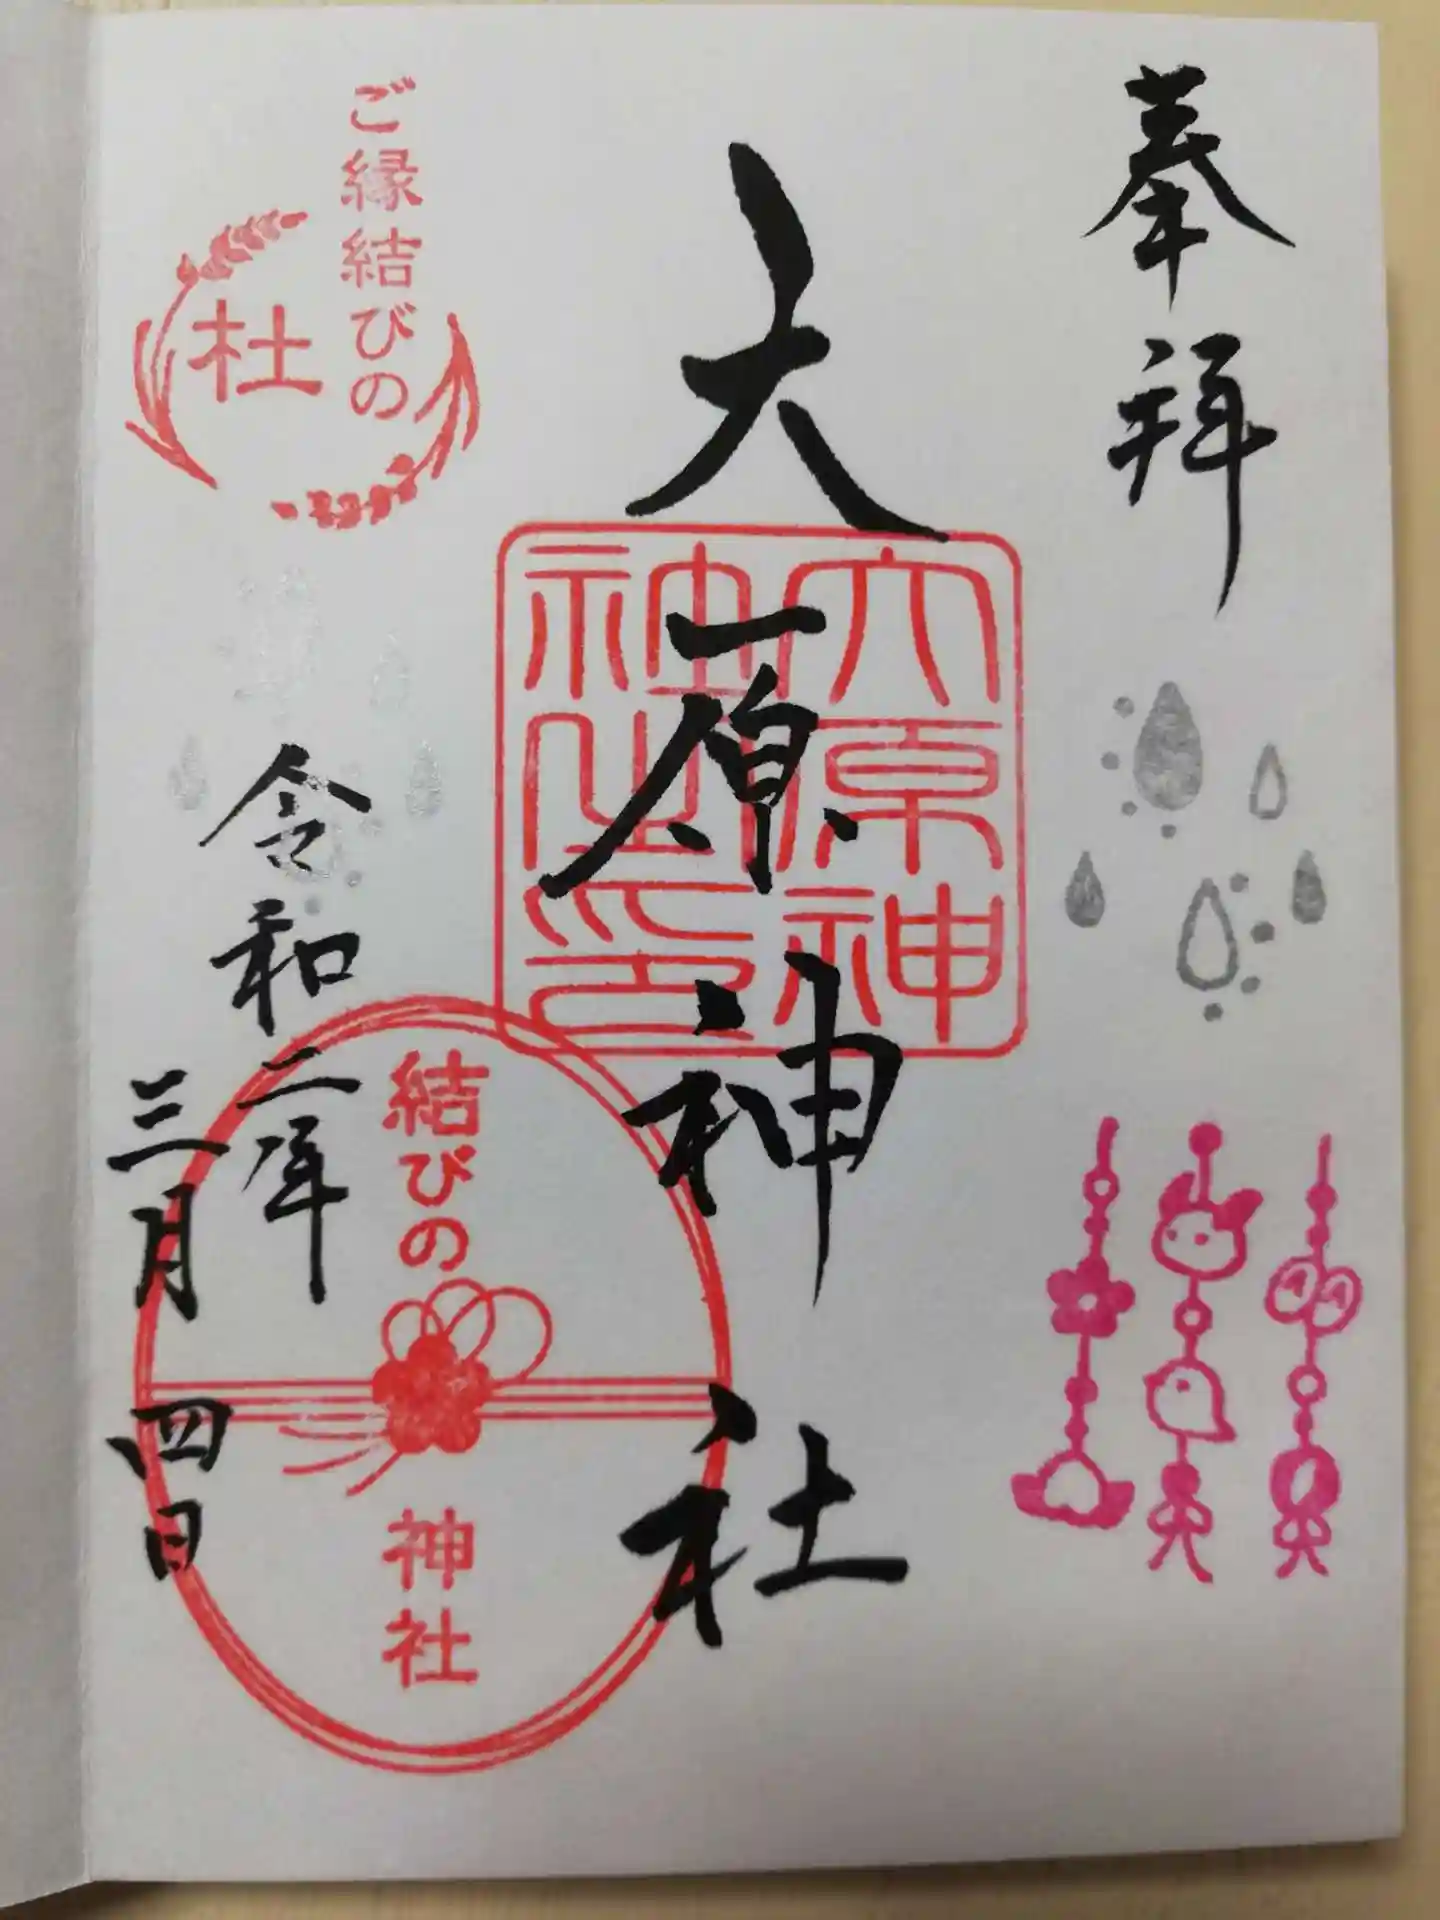 奉拝
大原神社
大原神社之印
ご縁結びの
杜
令和二年
三月四日
結びの
神社